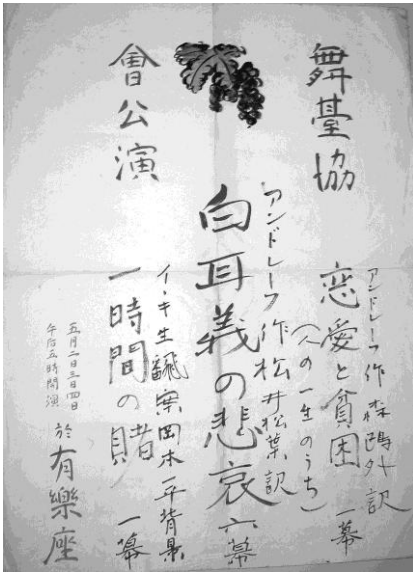 舞臺協
會公演
アンドレーフ作森鴎外訳
恋愛と貧困 一幕
(人の一生のうち)
アンドレーフ作松井松葉訳
白耳義の悲哀六幕
イーキ生飜案岡本一平背景
一時間の賭 一幕
五月二日三日四日
午后五時開演
於有樂座